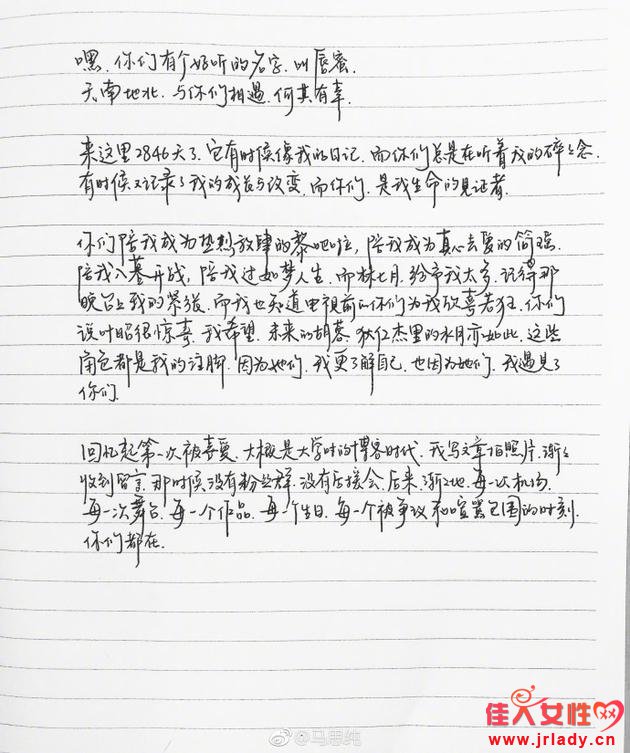 嘿.你们有个好听的名字.叫唇蜜.
天南地北.与你们相遇.何其有幸.
来这里2846天了.它有时候像我的日记.而你们总是在听着我的碎碎念.
有时候又记录了我的成长与改变.而你们.是我生命的见证者.
你们陪我成为热烈放肆的黎吧啦,陪我成为真心去爱的简瑶.
陪我入墓开战,陪我过如梦人生.而林七月.给予我太多.记得那
晚台上我的紧张.而我也知道电视前的你们为我欣喜若狂.你们
说叶昭很惊喜.我希望.未来的胡蓉.狄仁杰里的水月亦如此.这些
角色都是我的注脚.因为她们.我更了解自己.也因为她们.我遇見了
你们.
回忆起第一次被喜爱.大概是大学时的博客时代.我写文章拍照片.渐渐
收到留言.那时候没有粉丝群.没有后援会.后来.渐渐地.每一次机场.
每一次舞台.每一个作品.每一个生日.每一个被争议和喧嚣包围的时刻.
你们都在.
@马思纯
佳人女性网
www.jrlady.cn